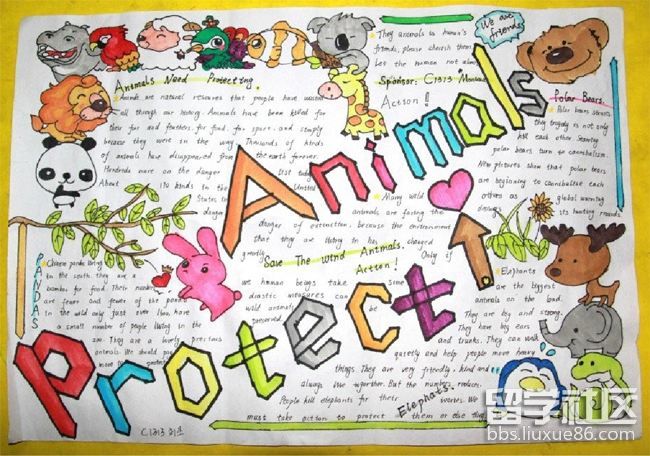 They animals is human's
friends, please cherish them.
Let the human not alone
Sponsor: C1313
Action!
We are friends
Animals Need Protecting.
Animals are natural resources that people have wasted
all through our history. Animals have been killed for
their fur and feathers, for food, for sport, and simply
because they were in the way. Thousands of kinds
of animals have disappeared from the earth forever.
Hundreds more are on the danger list today.
About 170 kinds in the United
States in
danger
Polar Bears.
Polar bears
they tragedy is not only
kill each other
polar bears turn to cannibalism.
New pictures show that polar bears
are beginning to cannibalise each
others as global warming
destroys its hunting grounds
Protect Animals
Many wild
animals are facing the
danger of extinction, because the environment
that they are living in has changed
greatly. Only if
Save The Wind Animals.
Action!
we human beings take some
drastic measures can
wild animals be
preserved.
PANDAS
Chinese panda living
in the south. they are a
bamboo for food. Their number
are fewer and fewer of the panda
in the wild only just over have
a small number of people living in the
They are a lovely precious
animals. We should
more
Elephants
are the biggest
animals on the land.
They are big and strong.
They have big ears
and trunks. They can walk
quietly and help people move heavy
things. They are very friendly, kind and
always live together. But the number reduces.
People kill elephants for their We
must take action to protect them or else they
Elephants.
C1313
留学社区
bbs.liuxue86.com